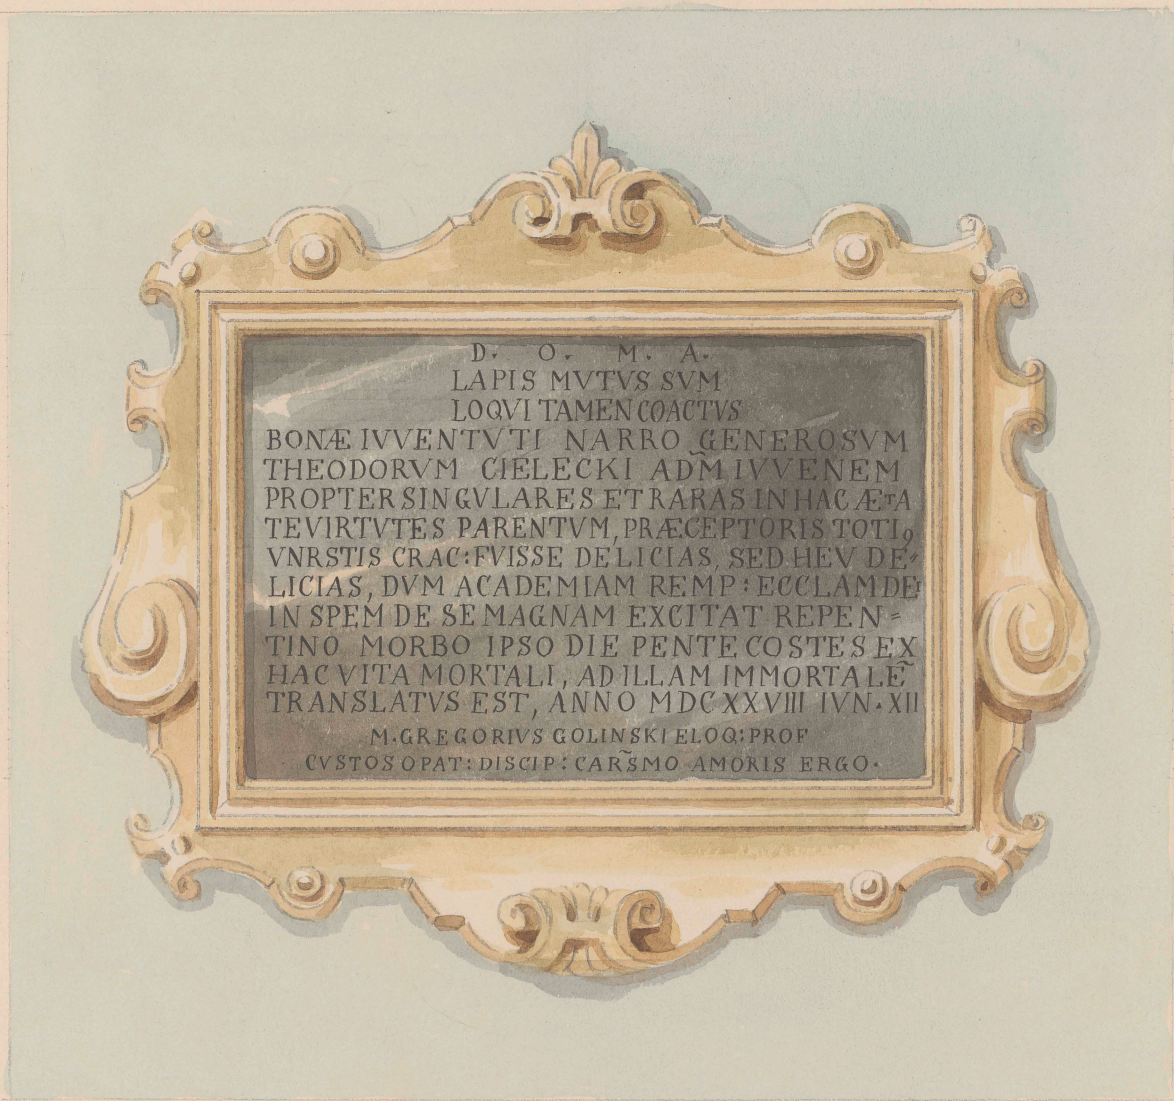 D. O. M. A.
LAPIS MVTVS SVM
LOQVI TAMEN COACTVS
BONÆ IVVENTVTI NARRO GENEROSVM
THEODORVM CIELECKI ADM̃ IVVENEM
PROPTER SINGVLARES ET RARAS IN HAC ÆTA
TE VIRTVTES PARENTVM, PRÆCEPTORIS TOTIꝰ
VNRSTIS CRAC: FVISSE DELICIAS, SED HEV DE=
LICIAS, DVM ACADEMIAM REMP: ECCLAM DEI
IN SPEM DE SE MAGNAM EXCITAT REPEN=
TINO MORBO IPSO DIE PENTECOSTES EX
HAC VITA MORTALI, AD ILLAM IMMORTALẼ
TRANSLATVS EST, ANNO MDCXXVIII IVN. XII
M. GREGORIVS GOLINSKI ELOQ: PROF
CVSTOS OPAT: DISCIP: CARS̃MO AMORIS ERGO.